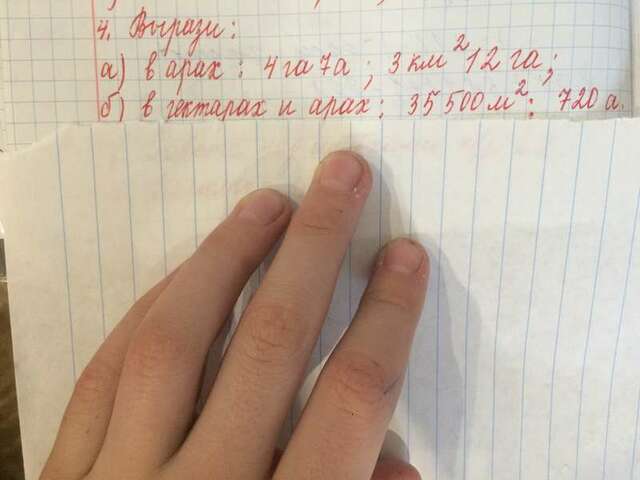 4. Вырази:
а) в арах: 4 га 7а; 3 км² 12 га;
б) в гектарах и арах: 35 500 м²; 720 а.